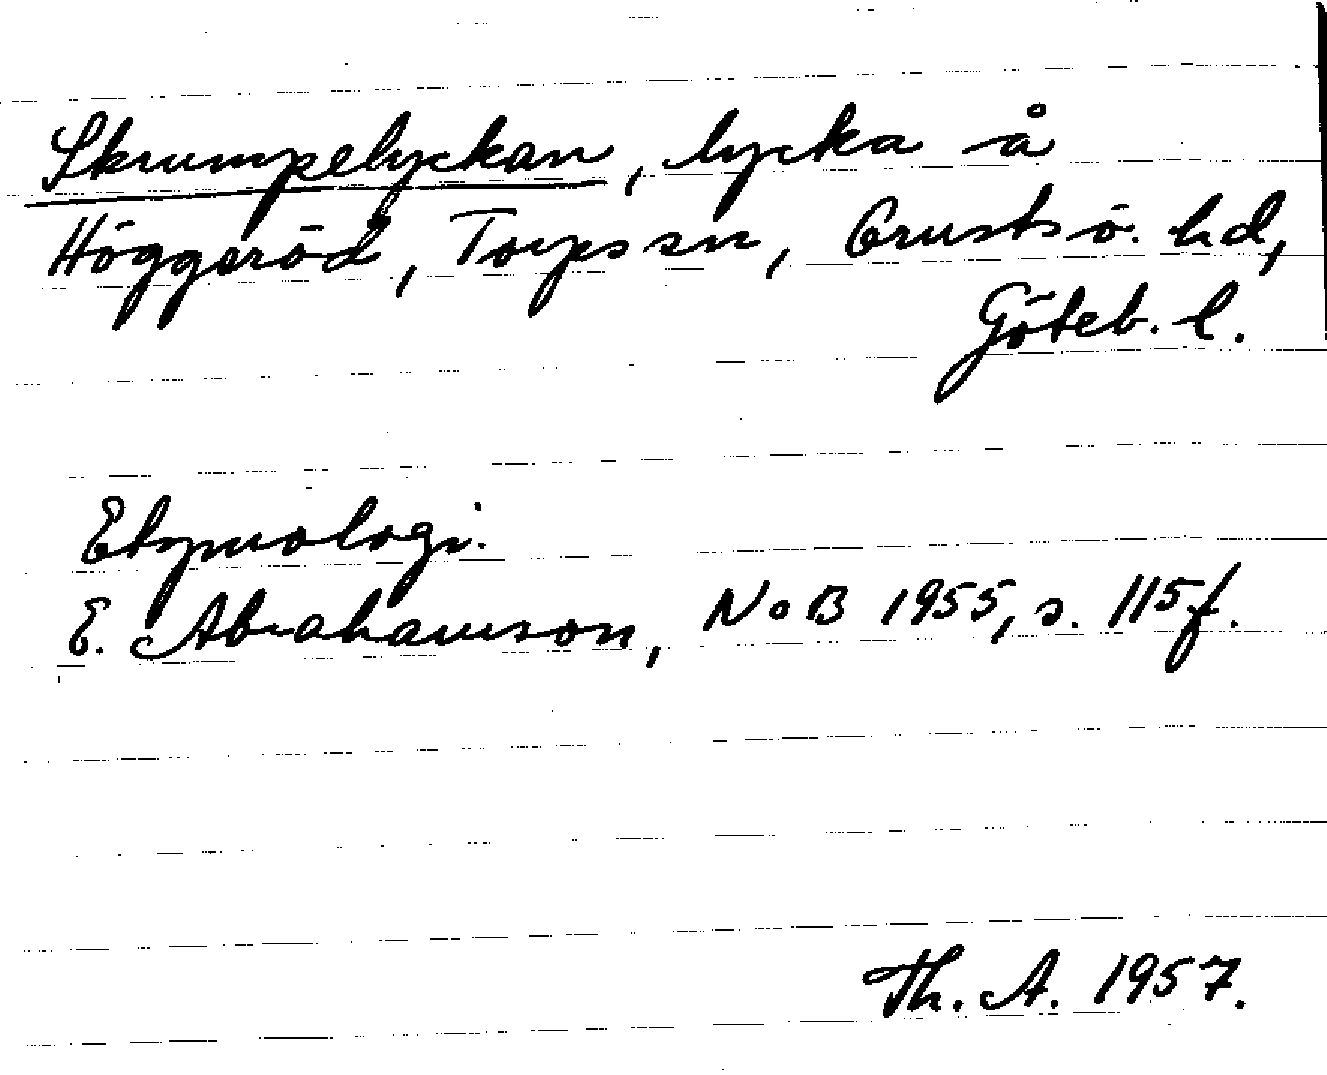 Skrumpelyckan, lycka å
Höggeröd, Torps sn, Orusts ö. hd,
Göteb. l.
Etymologi.
E. Abrahamson, NoB 1955, s. 115f.
Th. A. 1957.